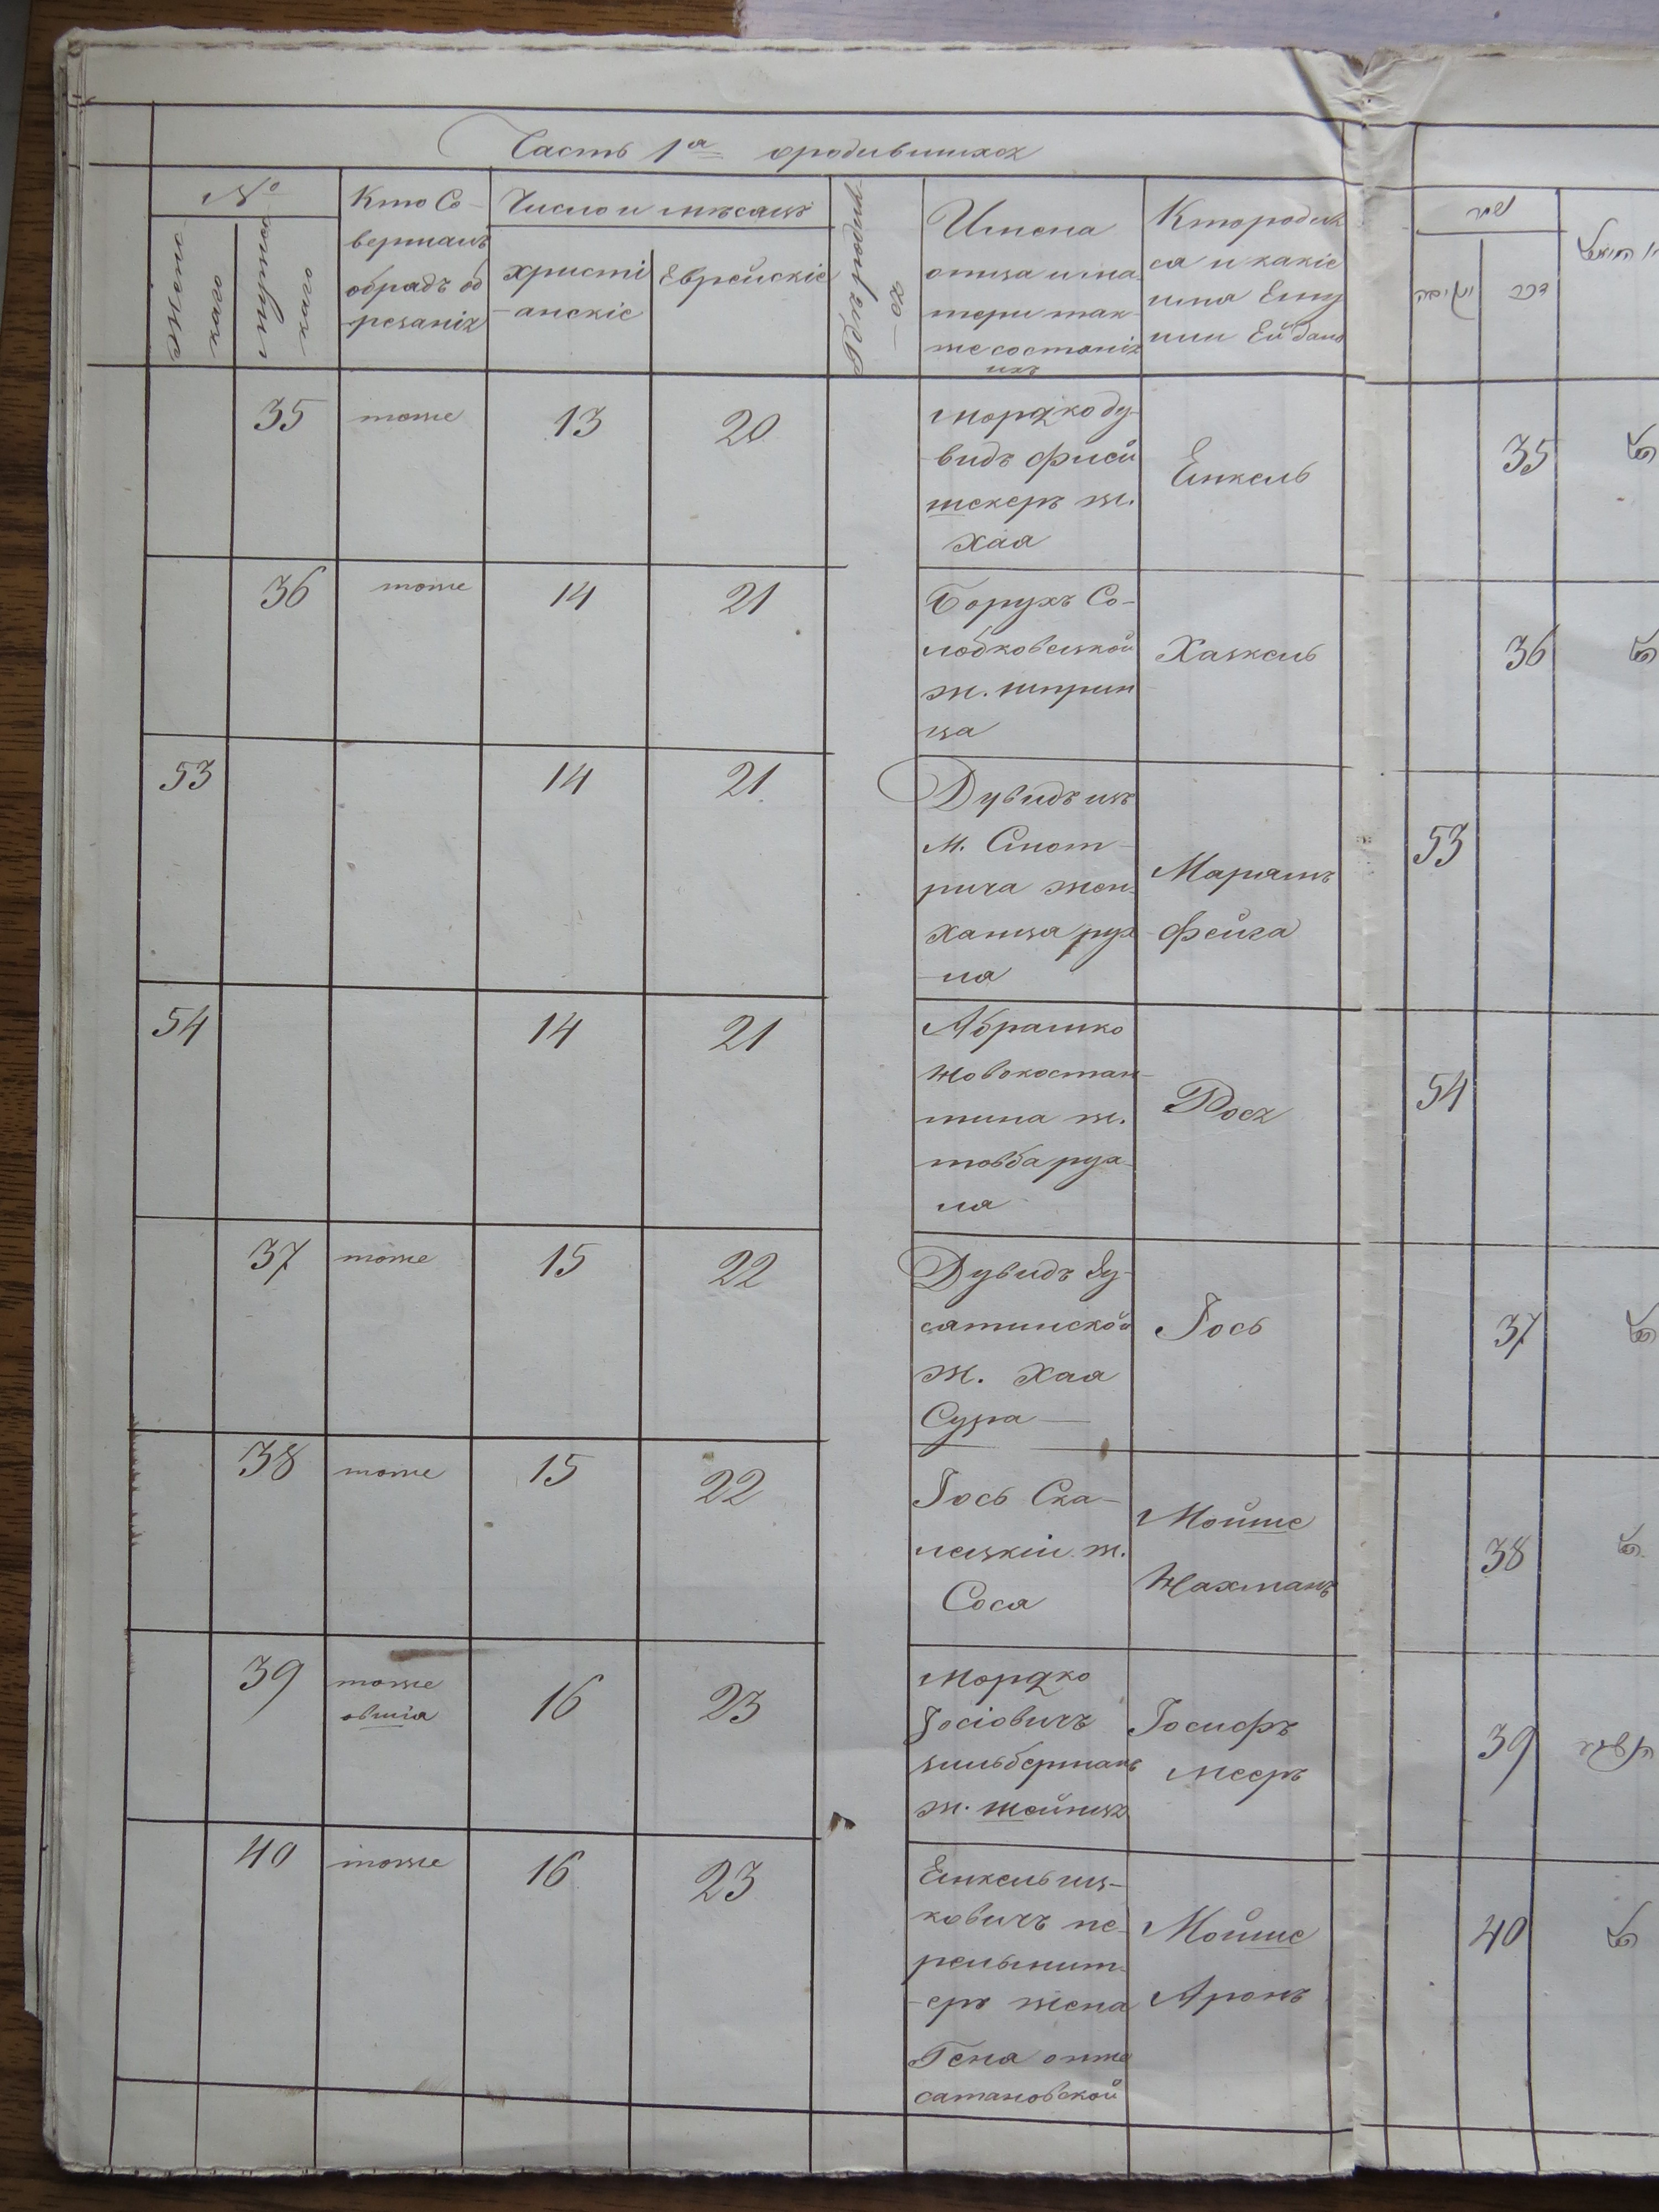 Часть 1ª ородившихся
№
Женс-
каго
мужес-
каго
Кто Со-
вершалъ
обрядъ об
резанія
Число и мѣсяцъ
христі
-анскіе
Еврейскіе
Гдѣ родил-
-ся
Имена
отца и ма-
тери так-
же состоянія
ихъ
Кто родил
ся и какіе
имя Ему
или Ей дано
35 тоже 13 20
Мордко ду-
видъ фисй
шекеръ ж.
хая
Енкель
36 тоже 14 21
Борухъ Со-
лобковецкой
ж. шприн
ца
Хаскель
53 14 21
Дувидъ изъ
м. Смот-
рича жен-
ханца рух
-ля
Маріямъ
фейга
54 14 21
Абрашко
Новокостан-
тина ж.
товба рух-
ля
Рося
37 тоже 15 22
Дувидъ Ду-
сятинской
ж. хая
Сура
Іось
38 тоже 15 22
Іось Ска-
лецкій ж.
Сося
Мойше
Нахманъ
39 тоже
овшія 16 23
Мордко
Іосіовичъ
зильберманъ
ж. шейнця
Іосифъ
мееръ
40 тоже 16 23
Енкель иц-
ковичъ пе-
рельмит-
-еръ жена
Геня
сатановской
Мойше
Аронъ
נקיבה
זכר
35
36
53
54
37
38
39
40